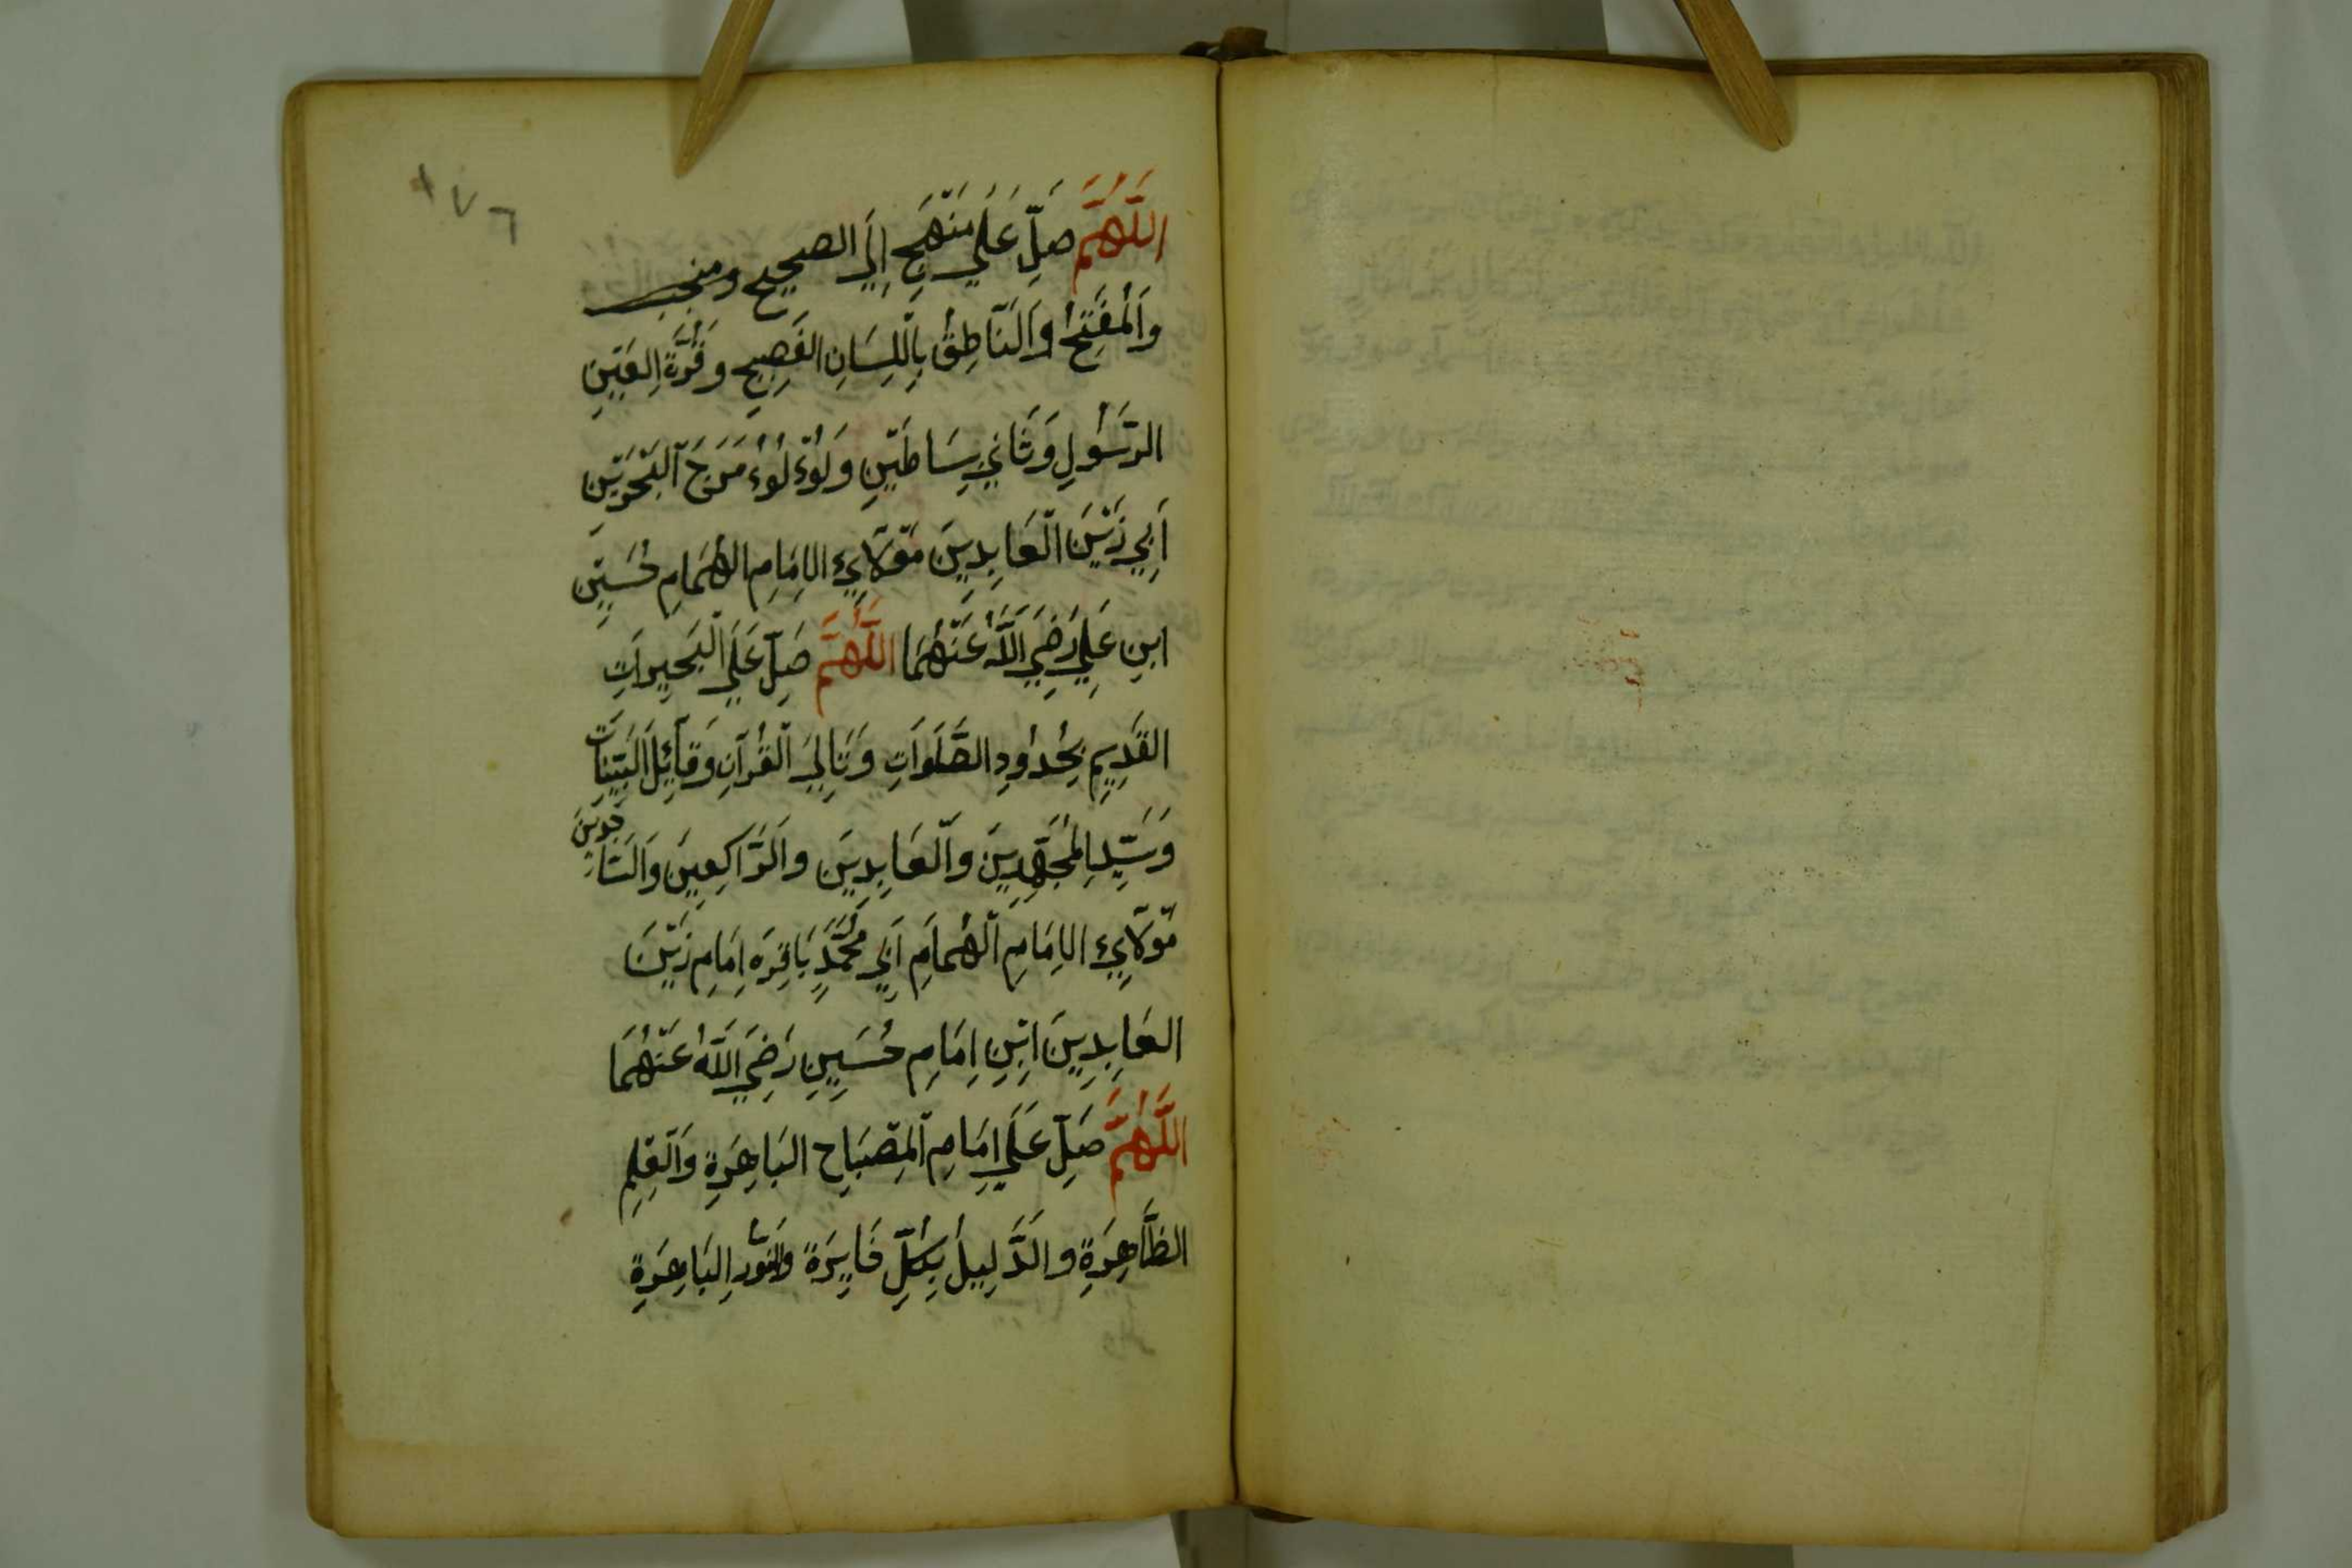 ١٧٦
اَللّٰهُمَّ صَلِّ عَلَي مَنْهَجِ اِلَي الصحيح ومنجب
وَالْمُفَتِّحُ وَالنَّاطِقُ بِاللِّسَانِ الفَصِيحِ وَقُرَّةِ العَيْنِ
الرَّسُولِ وَثَانِي سَاطَيْنِ وَلُوْءلُوْءُ مَرَجَ الْبَحْرَيْنِ
اَبِي زَيْنَ الْعَابِدِينَ مَوْلَايَءِ الاِمَامِ الهُمَامِ حُسَيْنِ
ابنِ عَلِيٍ رَضِيَ اللّٰهُ عَنْهُمَا اَللّٰهُمَّ صَلِّ عَلَي الْبَحِيرَاتِ
القَدِيمِ بِحُدُودِ الصَّلَوَاتِ وَتَالِيَ الْقُرْآنِ وَقَآئِلَ البَيِّنَاتِ
وَسَيِّدِ المُجْتَهِدِينَ وَالْعَابِدِينَ وَالرَّاكِعِينَ وَالسَّا
مَوْلَايَءِ الاِمَامِ الْهُمَامِ اَبِي مُحَمَّدٍ بَاقِرَه اِمَامِ زَيْنَ
العَابِدِينَ ابْنِ اِمَامِ حُسَيْنِ رَضِيَ اللّٰهُ عَنْهُمَا
اَللّٰهُمَّ صَلِّ عَلَي اِمَامِ الْمِصْبَاحِ البَاهِرَةِ وَالْعِلْمِ
الظَّاهِرَةِ والدَّلِيلُ بِكُلِّ فَايِزَةِ وَالنُّورِ البَاهِرَةِ